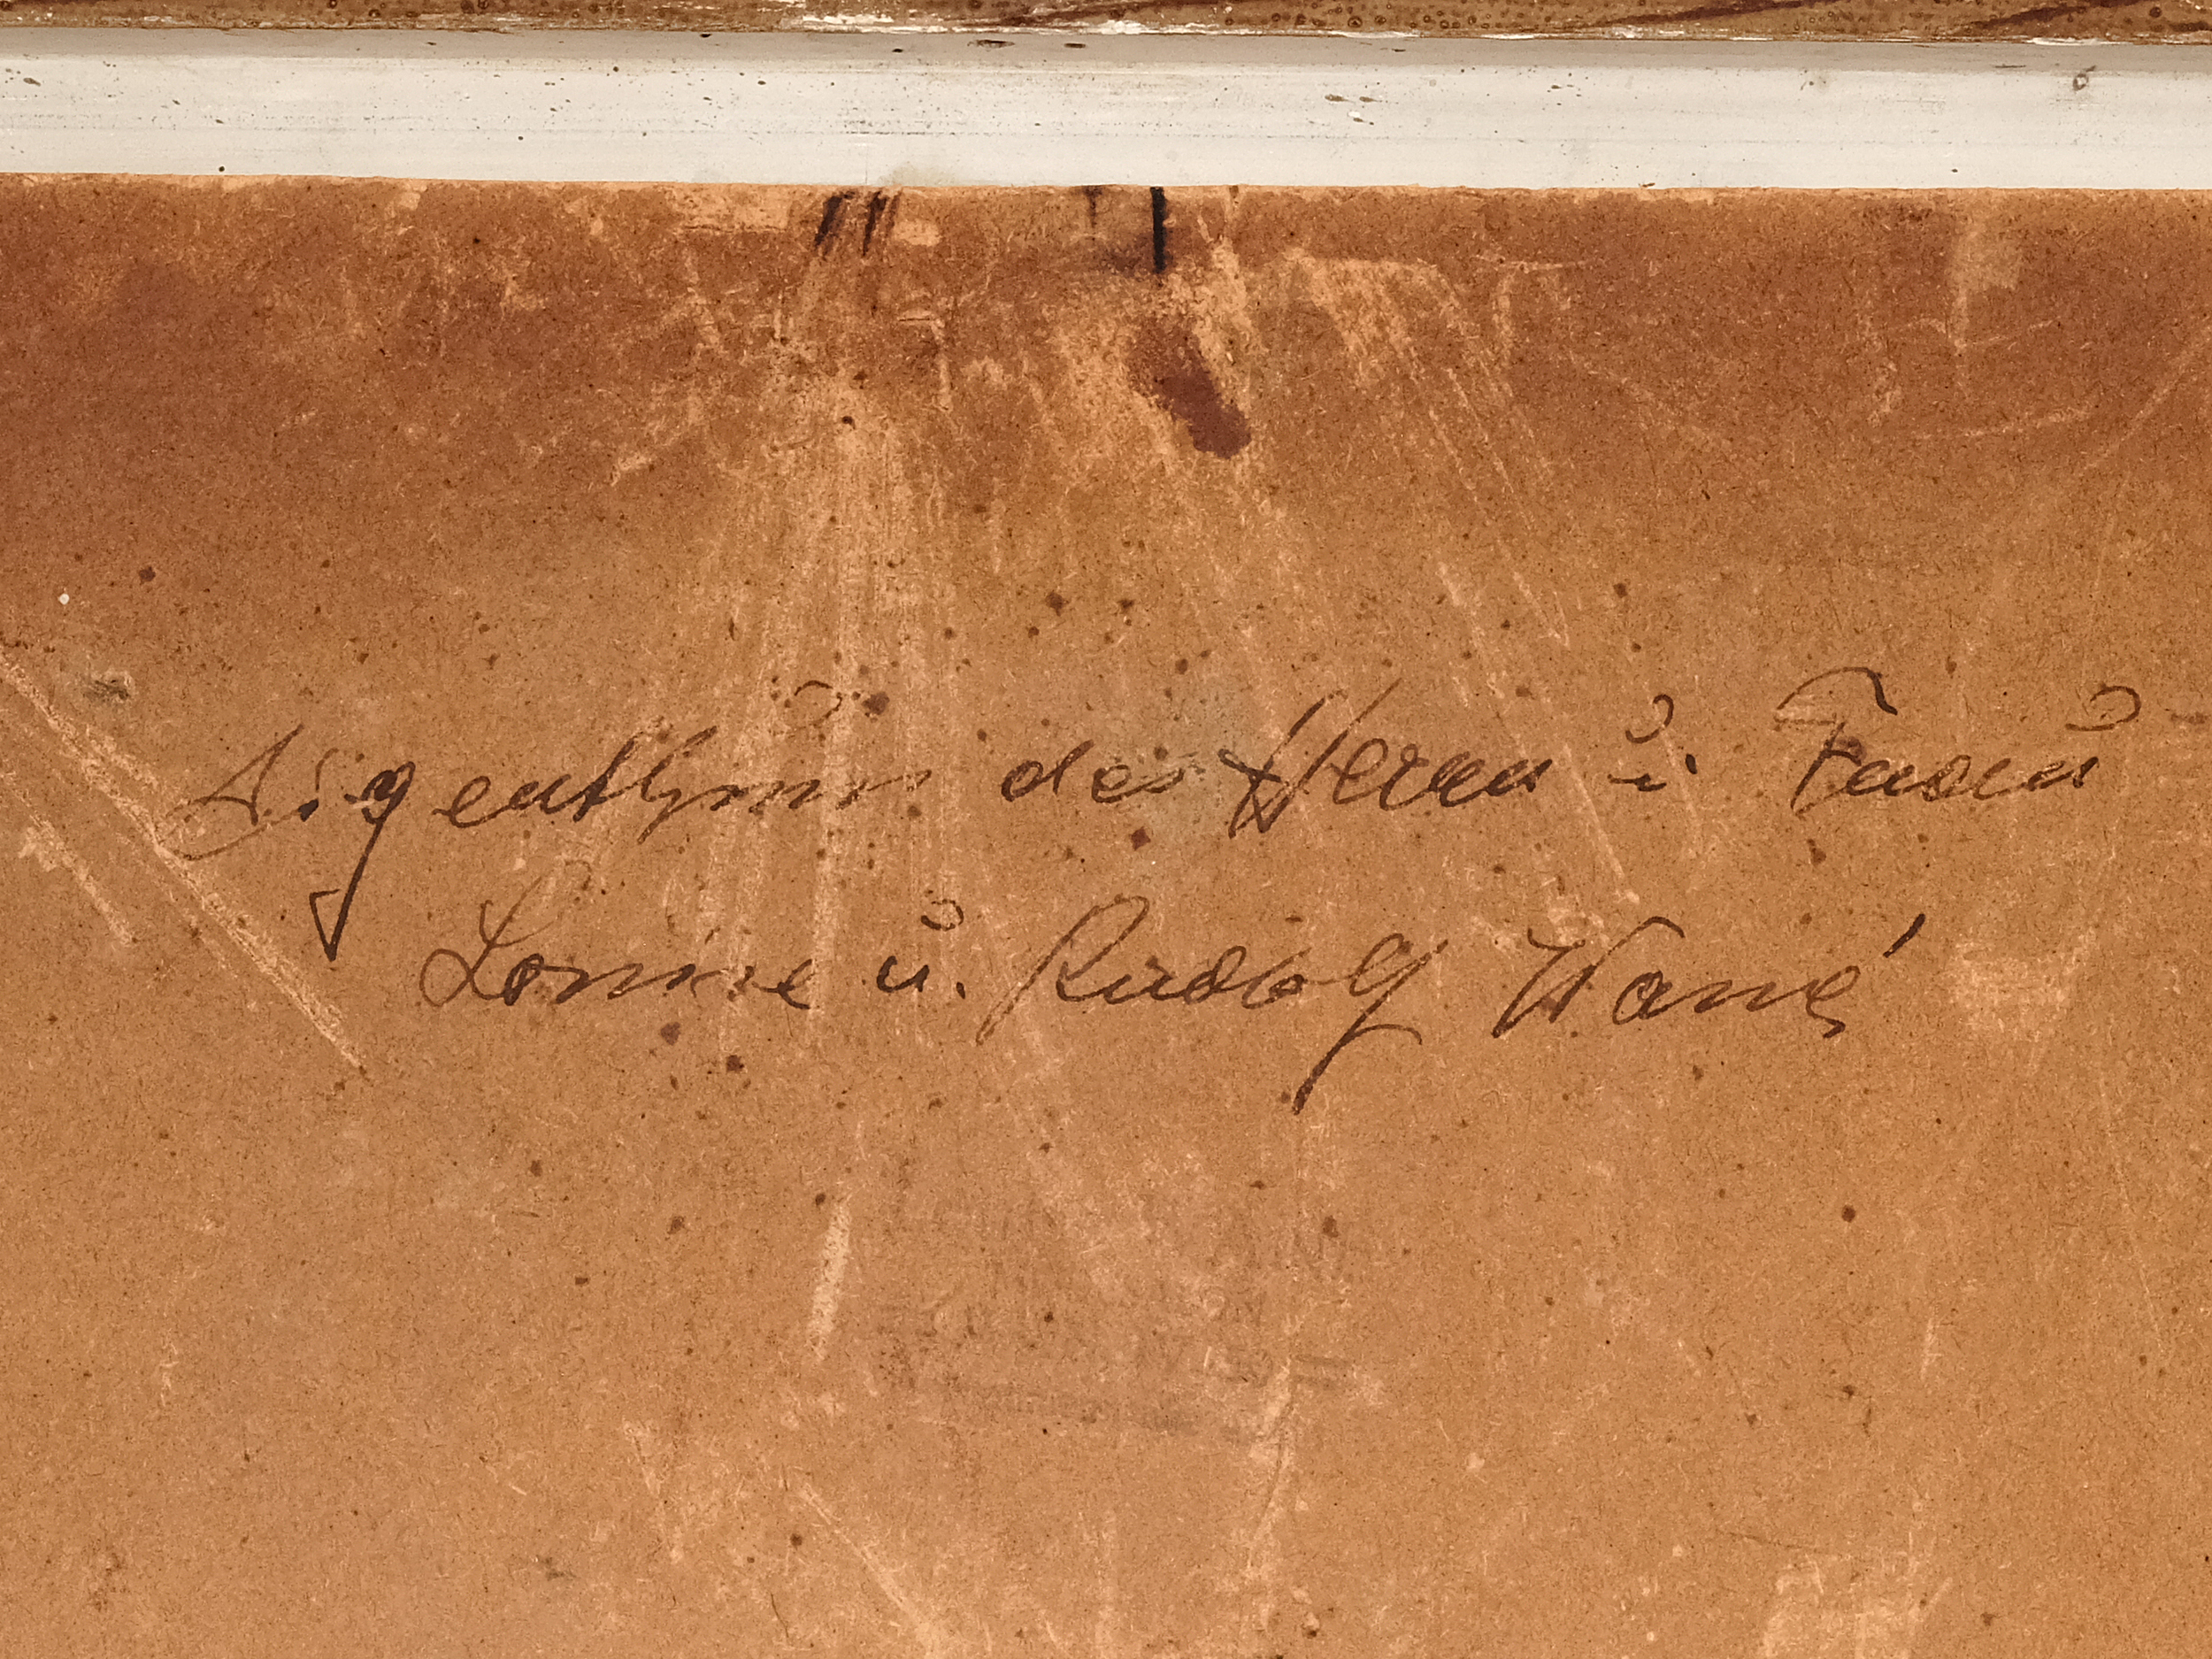 Eigenthum des Herrn u. Frau
Lonnie u. Rudolf Wane'